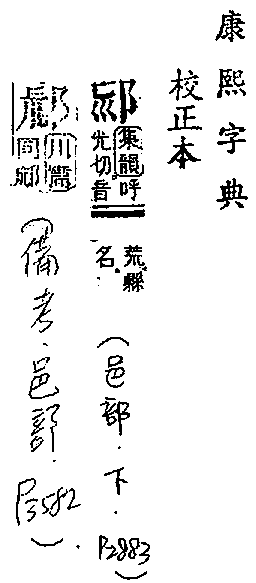 康熙字典
校正本
集韻呼光切音荒縣名
(邑部.下.P2883)
川篇同
(備考.邑部.P3582).